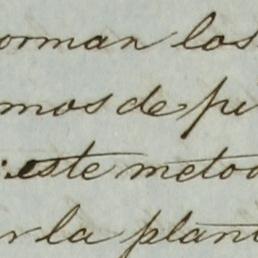 orman los
mos de pe
: este metod
r la plant